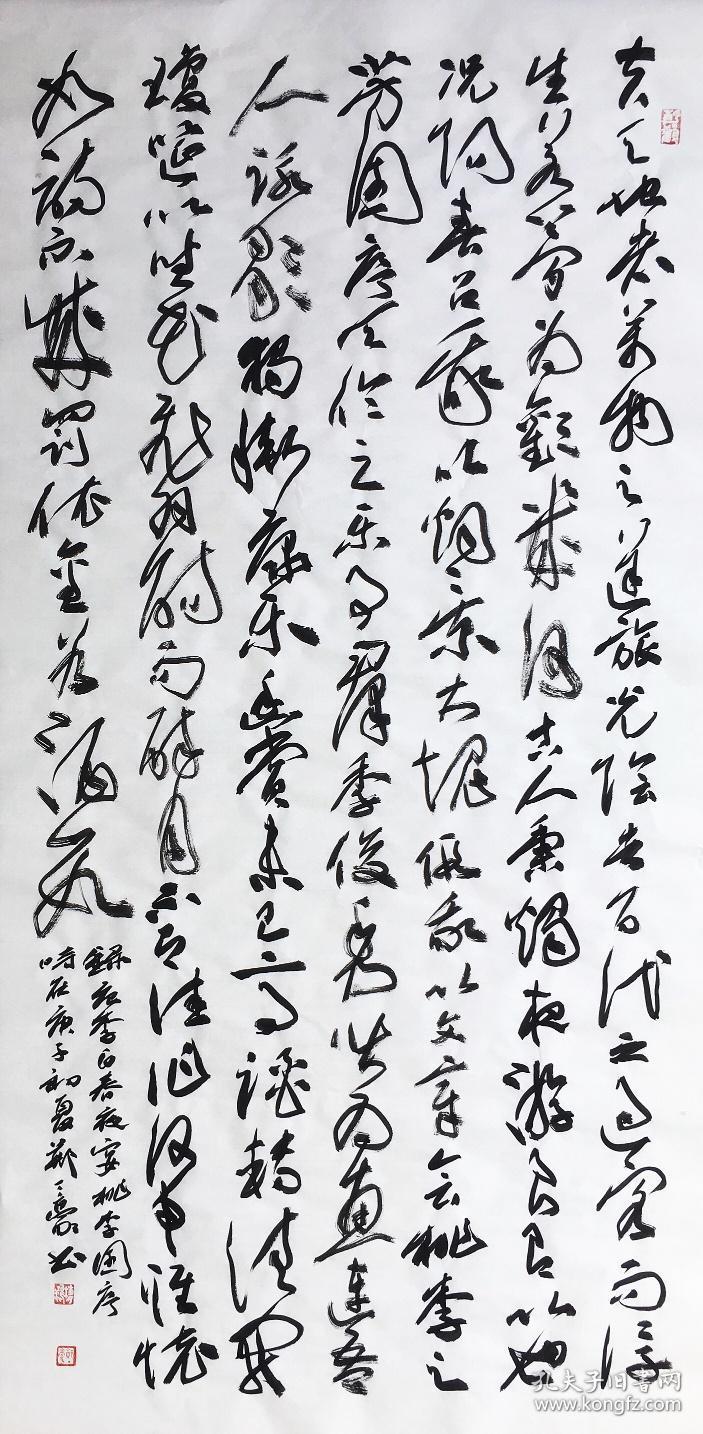 夫天地者萬物之逆旅光陰者百代之過客而浮
生若夢為歡幾何古人秉燭夜遊良有以也
況陽春召我以烟景大塊假我以文章會桃李之
芳園序天倫之樂事群季俊秀皆為惠連吾
人詠歌獨慚康樂幽賞未已高談轉清開
瓊筵以坐花飛羽觴而醉月不有佳作何申雅懷
如詩不成罰依金谷酒數
錄李白春夜宴桃李園序
時在庚子初夏鄭書
孔夫子旧书网
www.kongfz.com